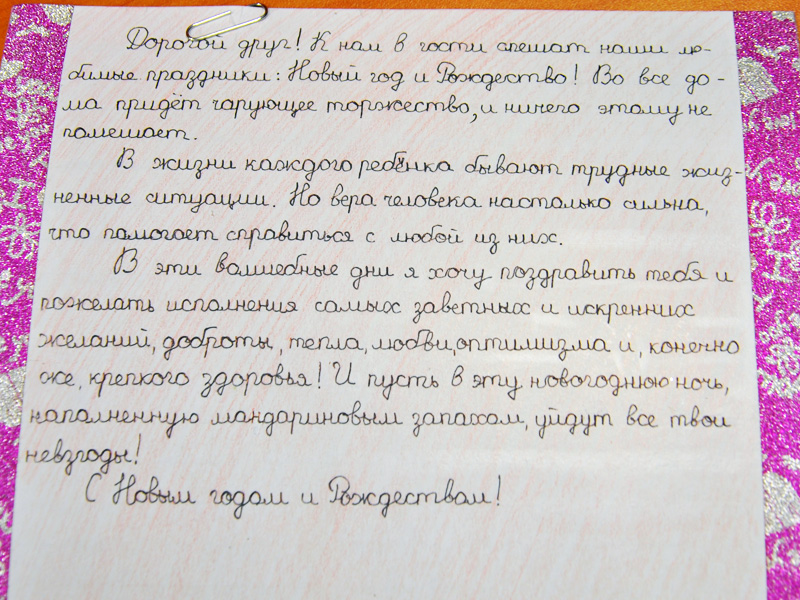 Дорогой друг! К нам в гости спешат наши лю-
бимые праздники: Новый год и Рождество! Во все до-
ма придёт чарующее торжество, и ничего этому не
помешает.
В жизни каждого ребёнка бывают трудные жиз-
ненные ситуации. Но вера человека настолько сильна,
что помогает справиться с любой из них.
В эти волшебные дни я хочу поздравить тебя и
пожелать исполнения самых заветных и искренних
желаний, доброты, тепла, любви, оптимизма и, конечно
же, крепкого здоровья! И пусть в эту новогоднюю ночь,
наполненную мандариновым запахом, уйдут все твои
невзгоды!
С Новым годом и Рождеством!